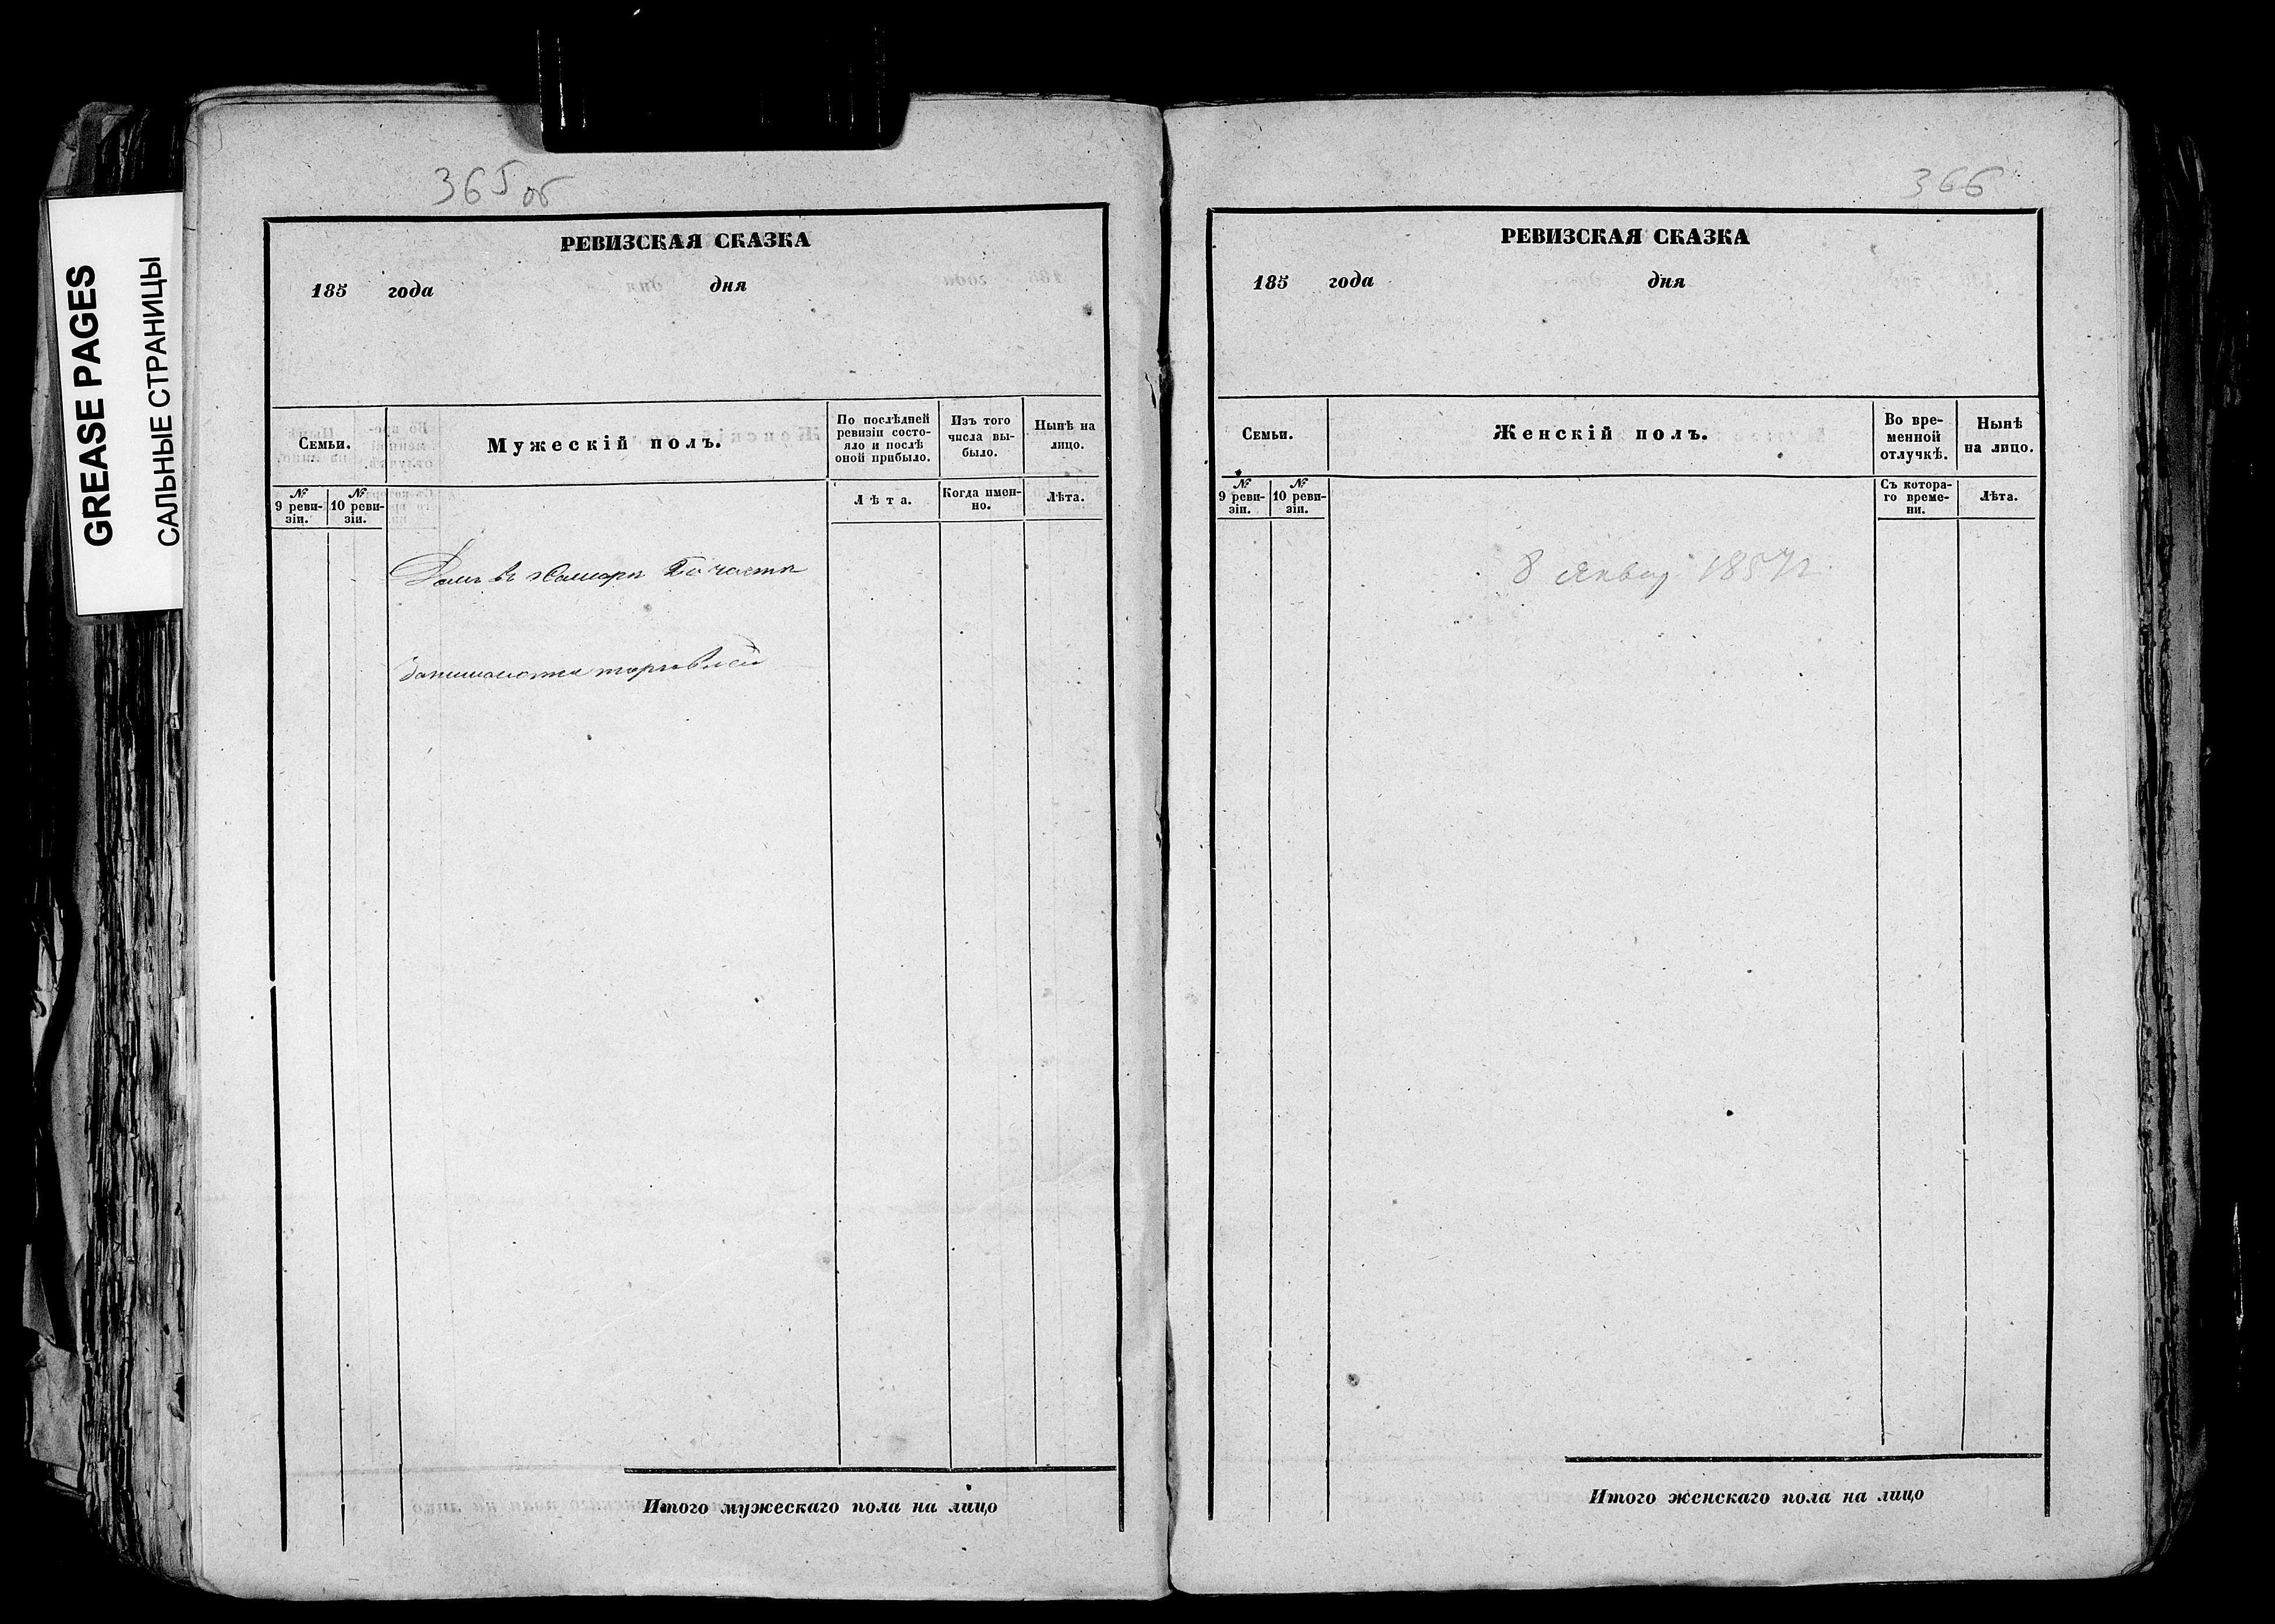 GREASE PAGES
САЛЬНЫЕ СТРАНИЦЫ
365 об
РЕВИЗСКАЯ СКАЗКА
185 года дня
Семьи.
Мужескій полъ.
По послѣдней
ревизіи состо-
яло и послѣ
оной прибыло.
Изъ того
числа вы-
было.
Нынѣ на
лицо.
№
9 реви-
зіи.
№
10 реви-
зіи.
Лѣта.
Когда имен-
но.
Лѣта.
Домъ въ Самарѣ части
Занимаются торговлей
Итого мужескаго пола на лицо
366
РЕВИЗСКАЯ СКАЗКА
185 года дня
Семьи.
Женскій полъ.
Во вре-
менной
отлучкѣ.
Нынѣ
на лицо.
№
9 реви-
зіи.
№
10 реви-
зіи.
Съ котора-
го време-
ни.
Лѣта.
8 Январ 1857 г.
Итого женскаго пола на лицо